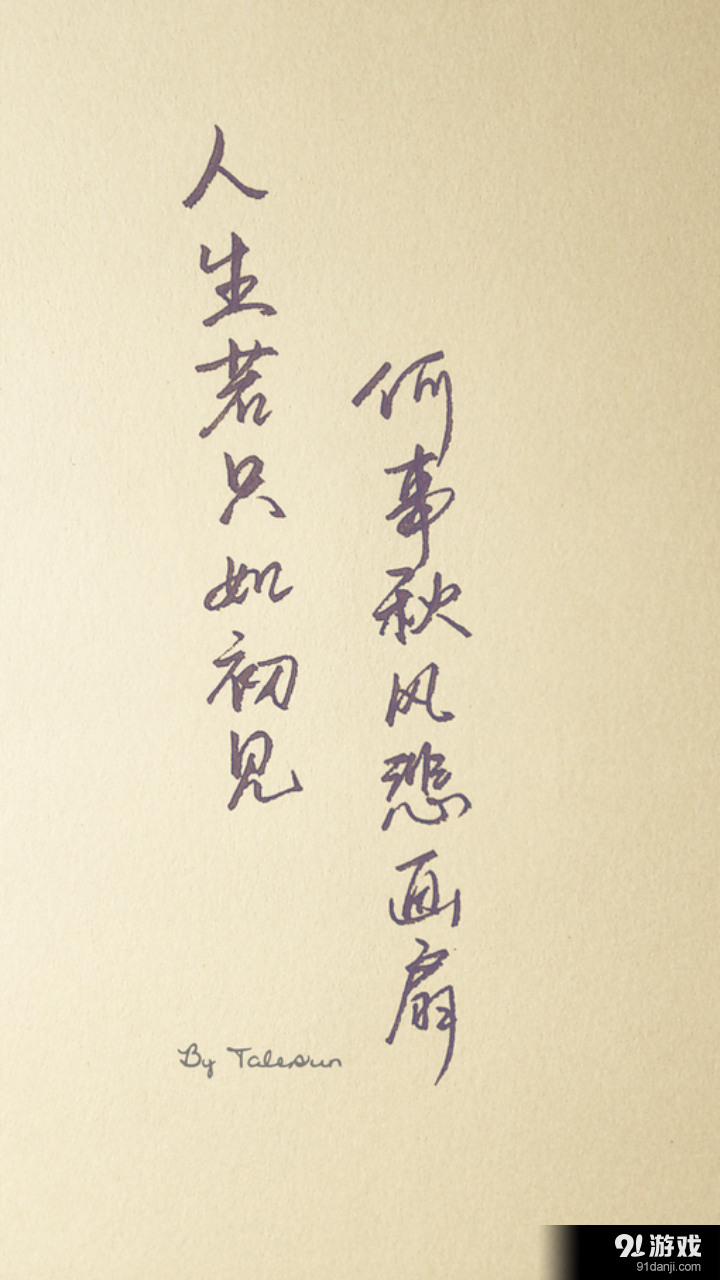 人生若只如初见
何事秋风悲画扇
By Talesun
91游戏
91danji.com